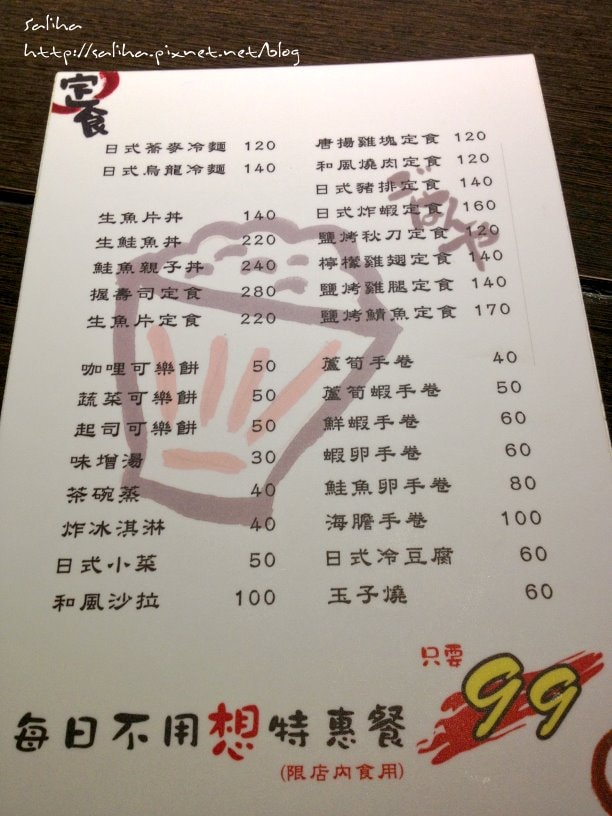 Saliha
http://saliha.pixnet.net/blog
定食
日式蕎麥冷麵 120
日式烏龍冷麵 140
生魚片丼 140
生鮭魚丼 220
鮭魚親子丼 240
握壽司定食 280
生魚片定食 220
咖哩可樂餅 50
蔬菜可樂餅 50
起司可樂餅 50
味增湯 30
茶碗蒸 40
炸冰淇淋 40
日式小菜 50
和風沙拉 100
唐揚雞塊定食 120
和風燒肉定食 120
日式豬排定食 140
日式炸蝦定食 160
鹽烤秋刀定食 120
檸檬雞翅定食 140
鹽烤雞腿定食 140
鹽烤鯖魚定食 170
ごはんや
蘆筍手卷 40
蘆筍蝦手卷 50
鮮蝦手卷 60
蝦卵手卷 60
鮭魚卵手卷 80
海膽手卷 100
日式冷豆腐 60
玉子燒 60
只要 99
每日不用想特惠餐
(限店內食用)